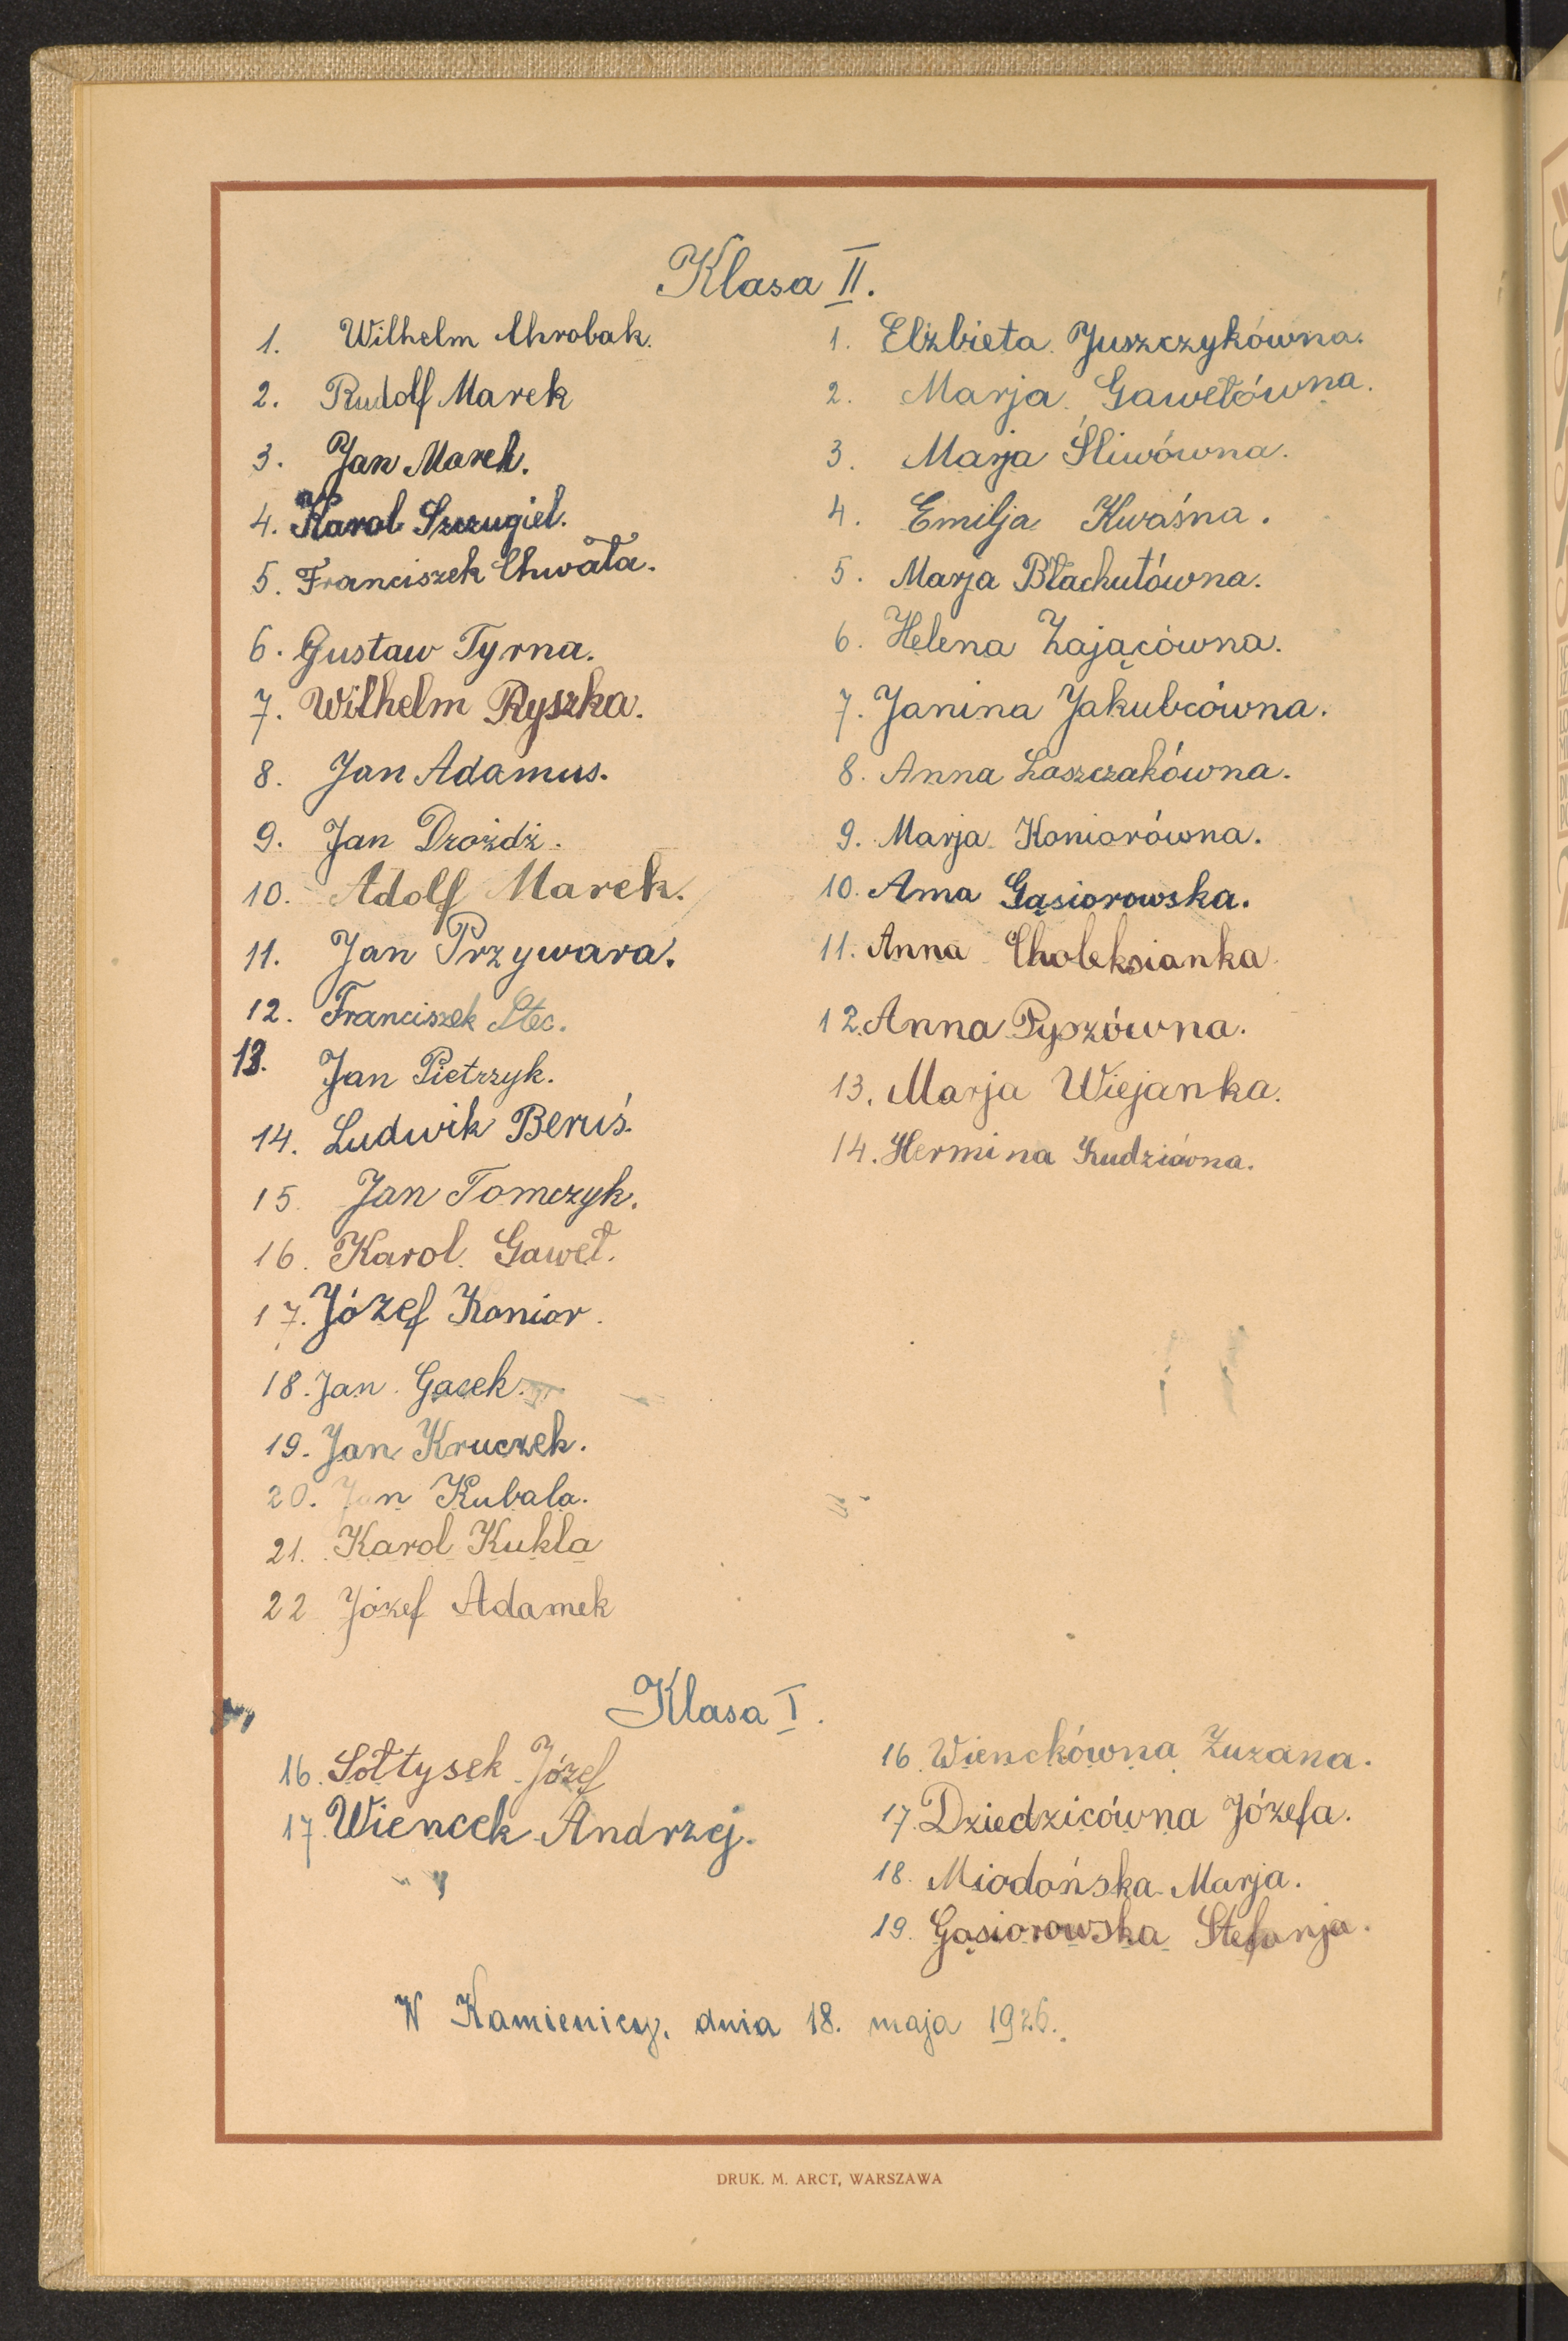 Klasa II.
1. Wilhelm Chrobak.
2. Rudolf Marek
3. Jan Marek.
4. Karol Szczugieł.
5. Franciszek Chwała.
6. Gustaw Tyrna.
7. Wilhelm Ryszka.
8. Jan Adamus.
9. Jan Drożdż.
10. Adolf Marek.
11. Jan Przywara.
12. Franciszek Stec.
13. Jan Pietrzyk.
14. Ludwik Beruś.
15. Jan Tomczyk.
16. Karol Gaweł.
17. Józef Konior.
18. Jan Gacek.
19. Jan Kruczek.
20. Jan Kubala.
21. Karol Kukla
22 Józef Adamek
1. Elżbieta Juszczykówna.
2. Marja Gawełówna.
3. Marja Śliwówna.
4. Emilja Kwaśna.
5. Marja Błachutówna.
6. Helena Zającówna.
7. Janina Jakubcówna.
8. Anna Laszczakówna.
9. Marja Koniorówna.
10. Anna Gąsiorowska.
11. Anna Choleksianka
12. Anna Pyszówna.
13. Marja Wiejanka.
14. Hermina Kudziówna.
Klasa I.
16. Sołtysek Józef
17. Wiencek Andrzej.
16. Wienckówna Zuzana.
17. Dziedzicówna Józefa.
18. Miodońska Marja.
19. Gąsiorowska Stefanja.
W Kamienicy, dnia 18. maja 1926.
DRUK. M. ARCT, WARSZAWA